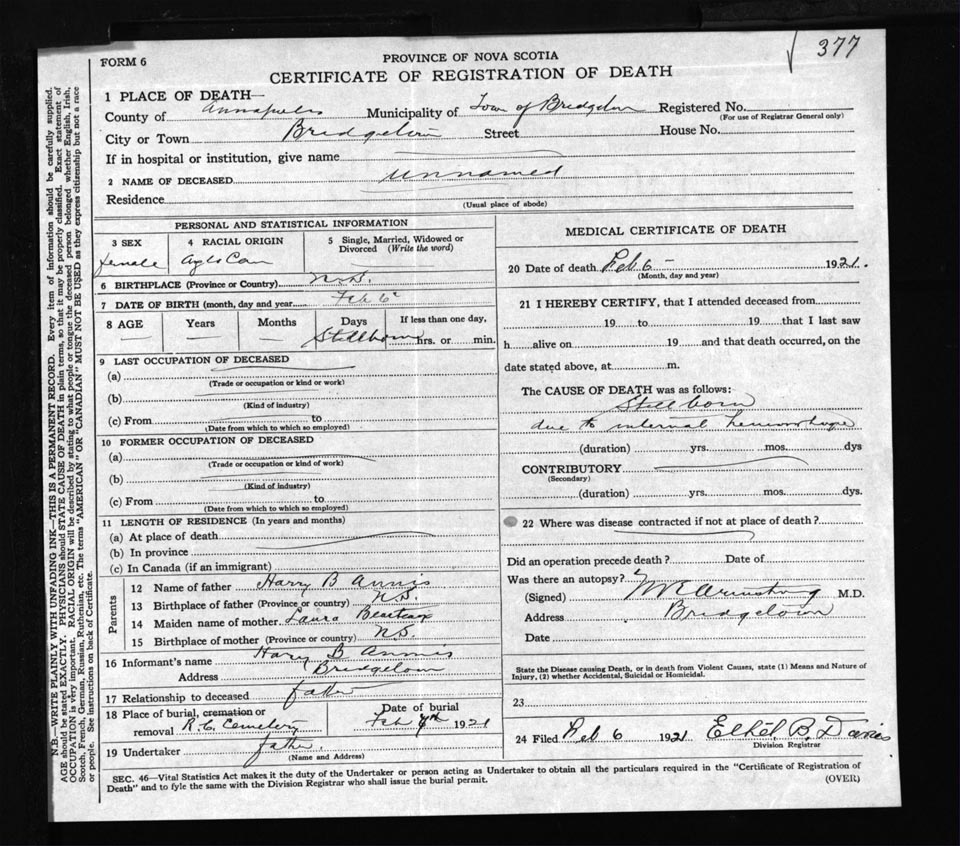 377
FORM 6
PROVINCE OF NOVA SCOTIA
CERTIFICATE OF REGISTRATION OF DEATH
1 PLACE OF DEATH—
County of Annapolis Municipality of Town of Bridgetown Registered No.
(For use of Registrar General only)
City or Town Bridgetown Street House No.
If in hospital or institution, give name
2 NAME OF DECEASED unnamed
Residence
(Usual place of abode)
PERSONAL AND STATISTICAL INFORMATION
3 SEX 4 RACIAL ORIGIN 5 Single, Married, Widowed or Divorced (Write the word)
female
6 BIRTHPLACE (Province or Country) N.S.
7 DATE OF BIRTH (month, day and year) Feb 6
8 AGE Years Months Days If less than one day,
Stillborn hrs. or min.
9 LAST OCCUPATION OF DECEASED
(a)
(Trade or occupation or kind or work)
(b)
(Kind of industry)
(c) From to
(Date from which to which so employed)
10 FORMER OCCUPATION OF DECEASED
(a)
(Trade or occupation or kind of work)
(b)
(Kind of industry)
(c) From to
(Date from which to which so employed)
11 LENGTH OF RESIDENCE (In years and months)
(a) At place of death
(b) In province
(c) In Canada (if an immigrant)
Parents
12 Name of father Harry B Annis
13 Birthplace of father (Province or country) N.S.
14 Maiden name of mother Laura
15 Birthplace of mother (Province or country) N.S.
16 Informant's name Harry B Annis
Address Bridgetown
17 Relationship to deceased father
18 Place of burial, cremation or removal R.C. Cemetery
Date of burial
Feb 7th 1921
19 Undertaker father.
(Name and Address)
MEDICAL CERTIFICATE OF DEATH
20 Date of death Feb 6 – 1921.
(Month, day and year)
21 I HEREBY CERTIFY, that I attended deceased from
19 to 19 that I last saw
h alive on 19 and that death occurred, on the
date stated above, at m.
The CAUSE OF DEATH was as follows:
Stillborn
due to internal hemorrhage
(duration) yrs. mos. dys
CONTRIBUTORY
(Secondary)
(duration) yrs. mos. dys.
22 Where was disease contracted if not at place of death?
Did an operation precede death? Date of
Was there an autopsy?
(Signed) Armstrong M.D.
Address Bridgetown
Date
State the Disease causing Death, or in death from Violent Causes, state (1) Means and Nature of
Injury, (2) whether Accidental, Suicidal or Homicidal.
23
24 Filed Feb 6 1921 Ethel B. Davies
Division Registrar
SEC. 46—Vital Statistics Act makes it the duty of the Undertaker or person acting as Undertaker to obtain all the particulars required in the "Certificate of Registration of
Death" and to fyle the same with the Division Registrar who shall issue the burial permit.
(OVER)
N.B.—WRITE PLAINLY WITH UNFADING INK—THIS IS A PERMANENT RECORD. Every item of information should be carefully supplied.
AGE should be stated EXACTLY. PHYSICIANS should STATE CAUSE OF DEATH in plain terms, so that it may be properly classified. Exact statement of
OCCUPATION is very important. RACIAL ORIGIN will be described by stating to what people or tongue the deceased person belonged whether English, Irish,
Scotch, French, German, Russian, Ruthenian, etc. The terms "AMERICAN" OR "CANADIAN" MUST NOT BE USED as they express citizenship but not a race
or people. See instructions on back of Certificate.